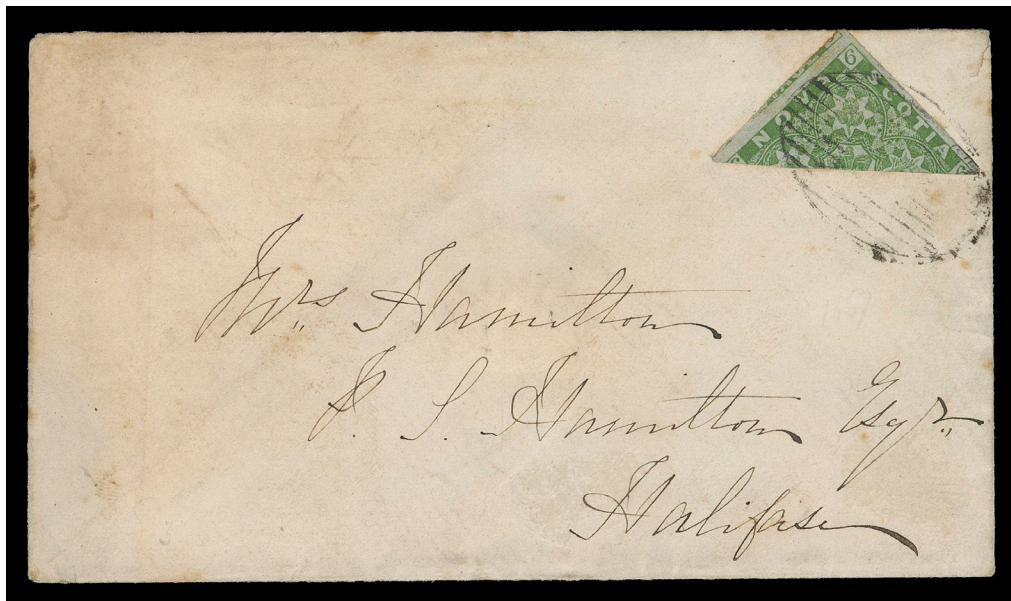 6
NOVA SCOTIA
Mrs. Hamilton
P. S. Hamilton Esqr.
Halifax